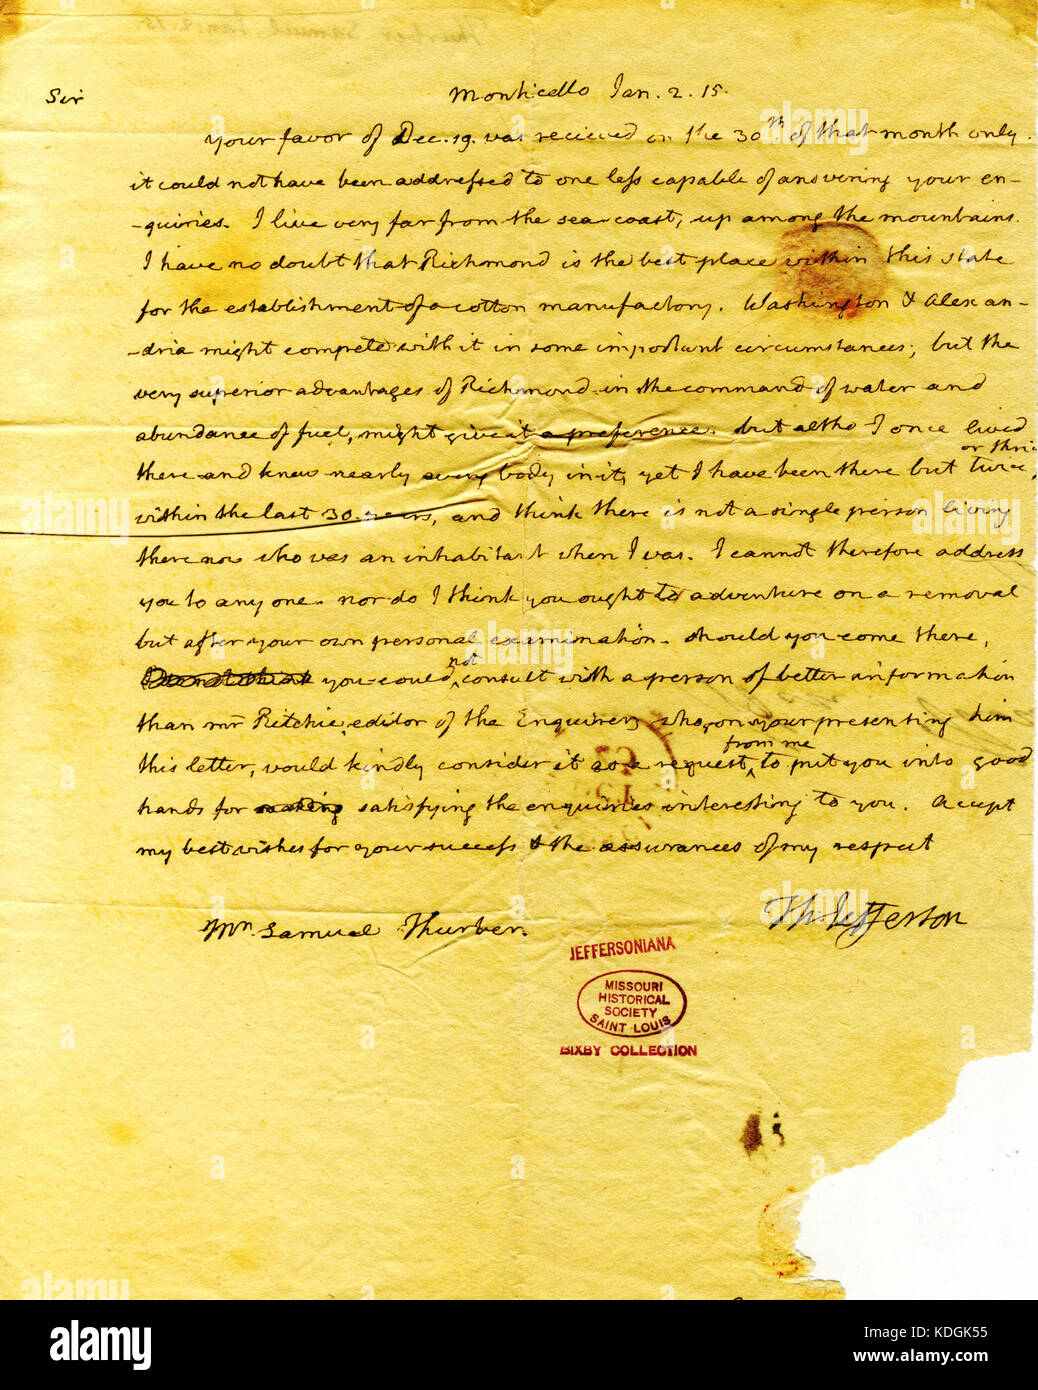 Sir
Monticello Jan. 2. 15.
Your favor of Dec. 19. was recieved on the 30th of that month only.
it could not have been addressed to one less capable of answering your en-
-quiries. I live very far from the sea-coast, up among the mountains.
I have no doubt that Richmond is the best place within this state
for the establishment of a cotton manufactory. Washington & Alexan-
-dria might compete with it in some important circumstances; but the
very superior advantages of Richmond in the command of water and
abundance of fuel, might give it a preference. but altho' I once lived
there and knew nearly every body in it, yet I have been there but twice or thrice
within the last 30. years, and think there is not a single person living
there now who was an inhabitant when I was. I cannot therefore address
you to any one. nor do I think you ought to adventure on a removal
but after your own personal examination. should you come there,
you could not consult with a person of better information
than mr Ritchie, editor of the Enquirer, who, on your presenting him
this letter, would kindly consider it as a request from me to put you into good
hands for making satisfying the enquiries interesting to you. Accept
my best wishes for your success & the assurances of my respect
Th: Jefferson
Mr. Samuel Thurber.
JEFFERSONIANA
MISSOURI
HISTORICAL
SOCIETY
SAINT LOUIS
BIXBY COLLECTION
alamy
Image ID: KDGK55
www.alamy.com